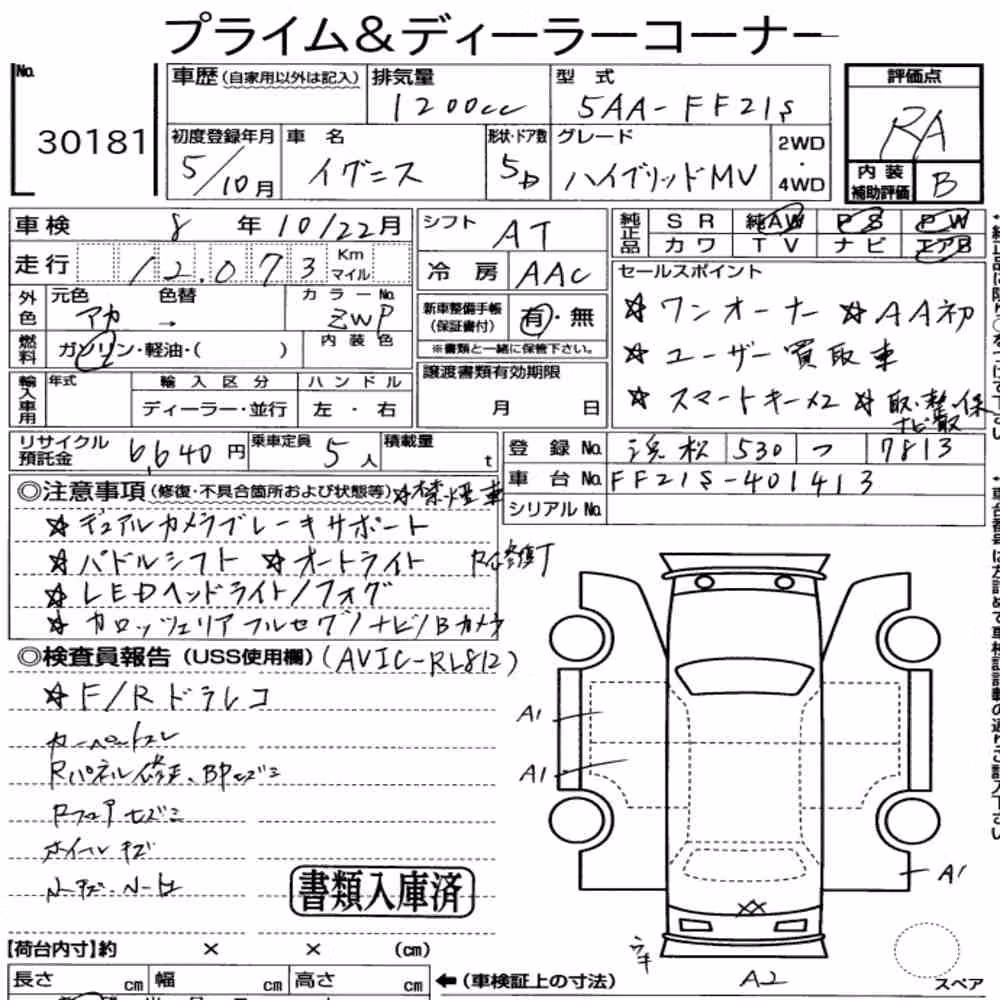 プライム&ディーラーコーナー
No.
30181
車歴(自家用以外は記入)
排気量
1200cc
型式
5AA-FF21S
評価点
RA
初度登録年月
5/10月
車名
イグニス
形状・ドア数
5D
グレード
ハイブリッドMV
2WD
・
4WD
内装
補助評価
B
車検 8年10/22月
走行 12.073 Km
マイル
シフト AT
冷房 AAC
純正品
SR 純AW PS PW
カワ TV ナビ エアB
セールスポイント
☆ワンオーナー ☆AA初
☆ユーザー買取車
☆スマートキー×2 ☆取・整・保
ナビ取
外色
元色 アカ
色替 →
カラーNo. ZWP
燃料
ガソリン・軽油・( )
内装色
新車整備手帳
(保証書付)
有・無
※書類と一緒に保管下さい。
輸入車用
年式
輸入区分
ディーラー・並行
ハンドル
左・右
譲渡書類有効期限
月 日
リサイクル
預託金
6,640円
乗車定員 5人
積載量 t
登録No. 浜松 530 つ 7813
車台No. FF21S-401413
シリアルNo.
◎注意事項(修復・不具合箇所および状態等)☆禁煙車
☆デュアルカメラブレーキサポート
☆パドルシフト ☆オートライト
☆LEDヘッドライト/フォグ
☆カロッツェリアフルセグ/ナビ/Bカメラ
◎検査員報告(USS使用欄)(AVIC-RL812)
☆F/Rドラレコ
Rパネル修正、BPヒズミ
Rフロアヒズミ
ホイールキズ
書類入庫済
A1
A1
A1
XX
A2
スペア
【荷台内寸】約 × × (cm)
長さ cm 幅 cm 高さ cm
←(車検証上の寸法)